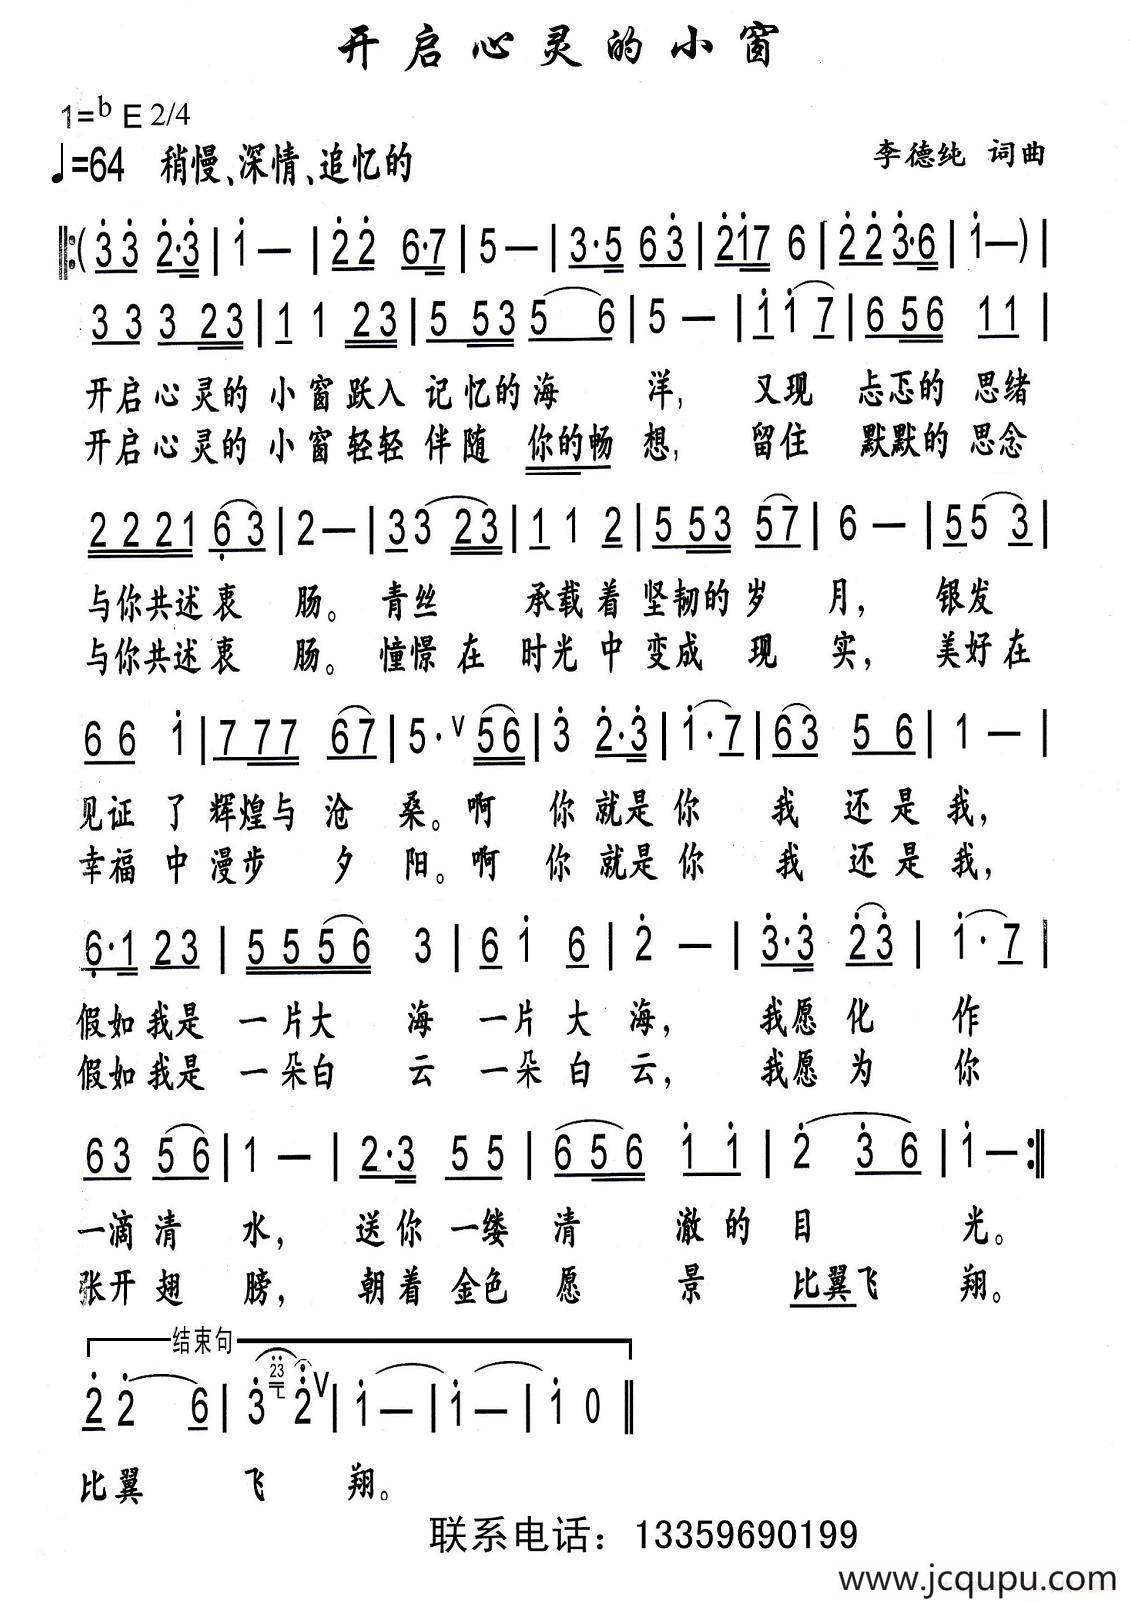 开启心灵的小窗
1=♭E 2/4
♩=64 稍慢、深情、追忆的 李德纯 词曲
‖:(3̇3̇ 2̇·3̇|1̇—|2̇2̇ 6·7|5—|3·5 63̇|2̇1̇7 6|2̇2̇3̇·6|1̇—)|
33323|1 1 23|5 535 6|5—|1̇1̇7|656 11|
开启心灵的小窗跃入记忆的海洋,又现忐忑的思绪
开启心灵的小窗轻轻伴随你的畅想,留住默默的思念
2221 6̣3|2—|33 23|1 1 2|553 57|6—|55 3|
与你共述衷肠。青丝承载着坚韧的岁月,银发
与你共述衷肠。憧憬在时光中变成现实,美好在
66 1̇|777 67|5·∨56|3̇ 2̇·3̇|1̇·7|63 56|1—|
见证了辉煌与沧桑。啊你就是你我还是我,
幸福中漫步夕阳。啊你就是你我还是我,
6̣·1 23|5556 3|6 1̇ 6|2̇—|3̇·3̇ 2̇3̇|1̇·7|
假如我是一片大海一片大海,我愿化作
假如我是一朵白云一朵白云,我愿为你
63 56|1—|2·3 55|656 1̇1̇|2̇ 3̇6|1̇—:‖
一滴清水,送你一缕清澈的目光。
张开翅膀,朝着金色愿景比翼飞翔。
结束句
2̇2̇ 6|3̇ 2̇3̇ 2̇∨|1̇—|1̇—|1̇ 0‖
比翼飞翔。
联系电话：13359690199
www.jcqupu.com